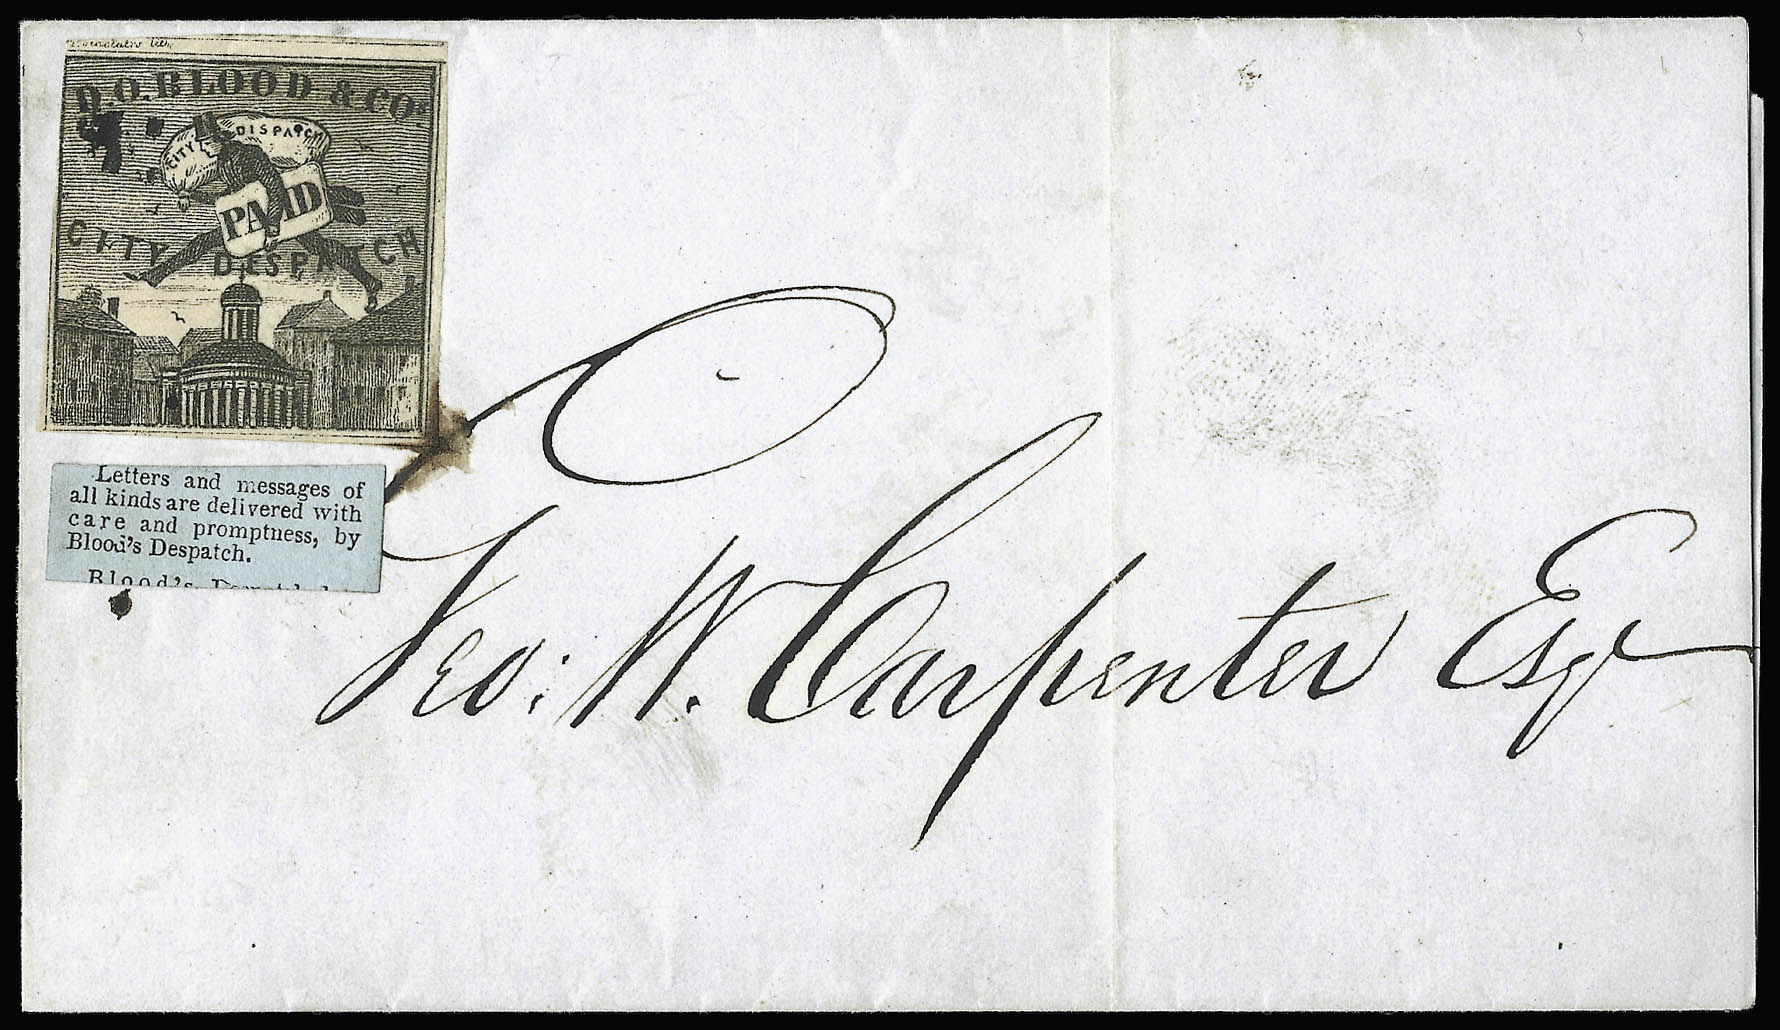 D.O. BLOOD & CO'S
CITY DISPATCH
PAID
CITY DESPATCH
Letters and messages of
all kinds are delivered with
care and promptness, by
Blood's Despatch.
Blood's
Geo: W. Carpenter Esqr